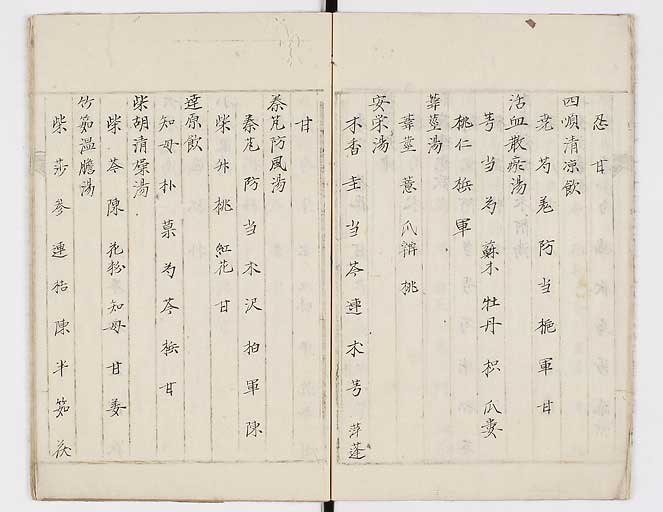 忍 甘
四順清凉飲
芍 羌 防 当 梔 軍 甘
活血散瘀湯
芎 当 芍 蘇木 牡丹 枳 瓜蔞
桃仁 梹 軍
葦莖湯
葦莖 薏 瓜辧 桃
安栄湯
木香 当 芩 連 木 芎 萍蓬
甘
秦艽防風湯
秦艽 防 当 木 沢 柏 軍 陳
柴 升 桃 紅花 甘
達原飲
知母 朴 菓 芍 芩 梹 甘
柴胡清燥湯
柴 芩 陳 花粉 知母 甘 姜
竹茹温膽湯
柴 莎 参 連 桔 陳 半 茹 茯